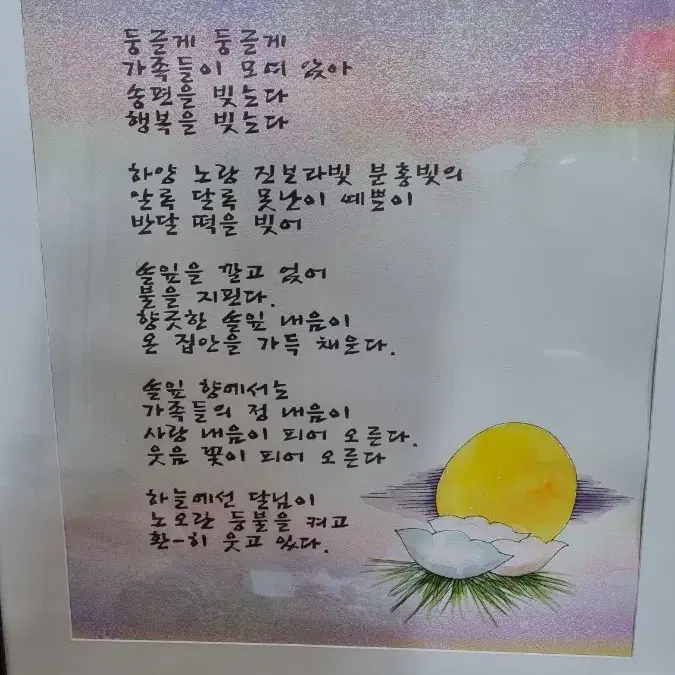 둥글게 둥글게
가족들이 모여 앉아
송편을 빚는다
행복을 빚는다
하양 노랑 진보라빛 분홍빛의
알록 달록 못난이 예쁜이
반달 떡을 빚어
솔잎을 깔고 얹어
불을 지핀다.
향긋한 솔잎 내음이
온 집안을 가득 채운다.
솔잎 향에서는
가족들의 정 내음이
사랑 내음이 피어 오른다.
웃음 꽃이 피어 오른다
하늘에선 달님이
노오란 등불을 켜고
환-히 웃고 있다.